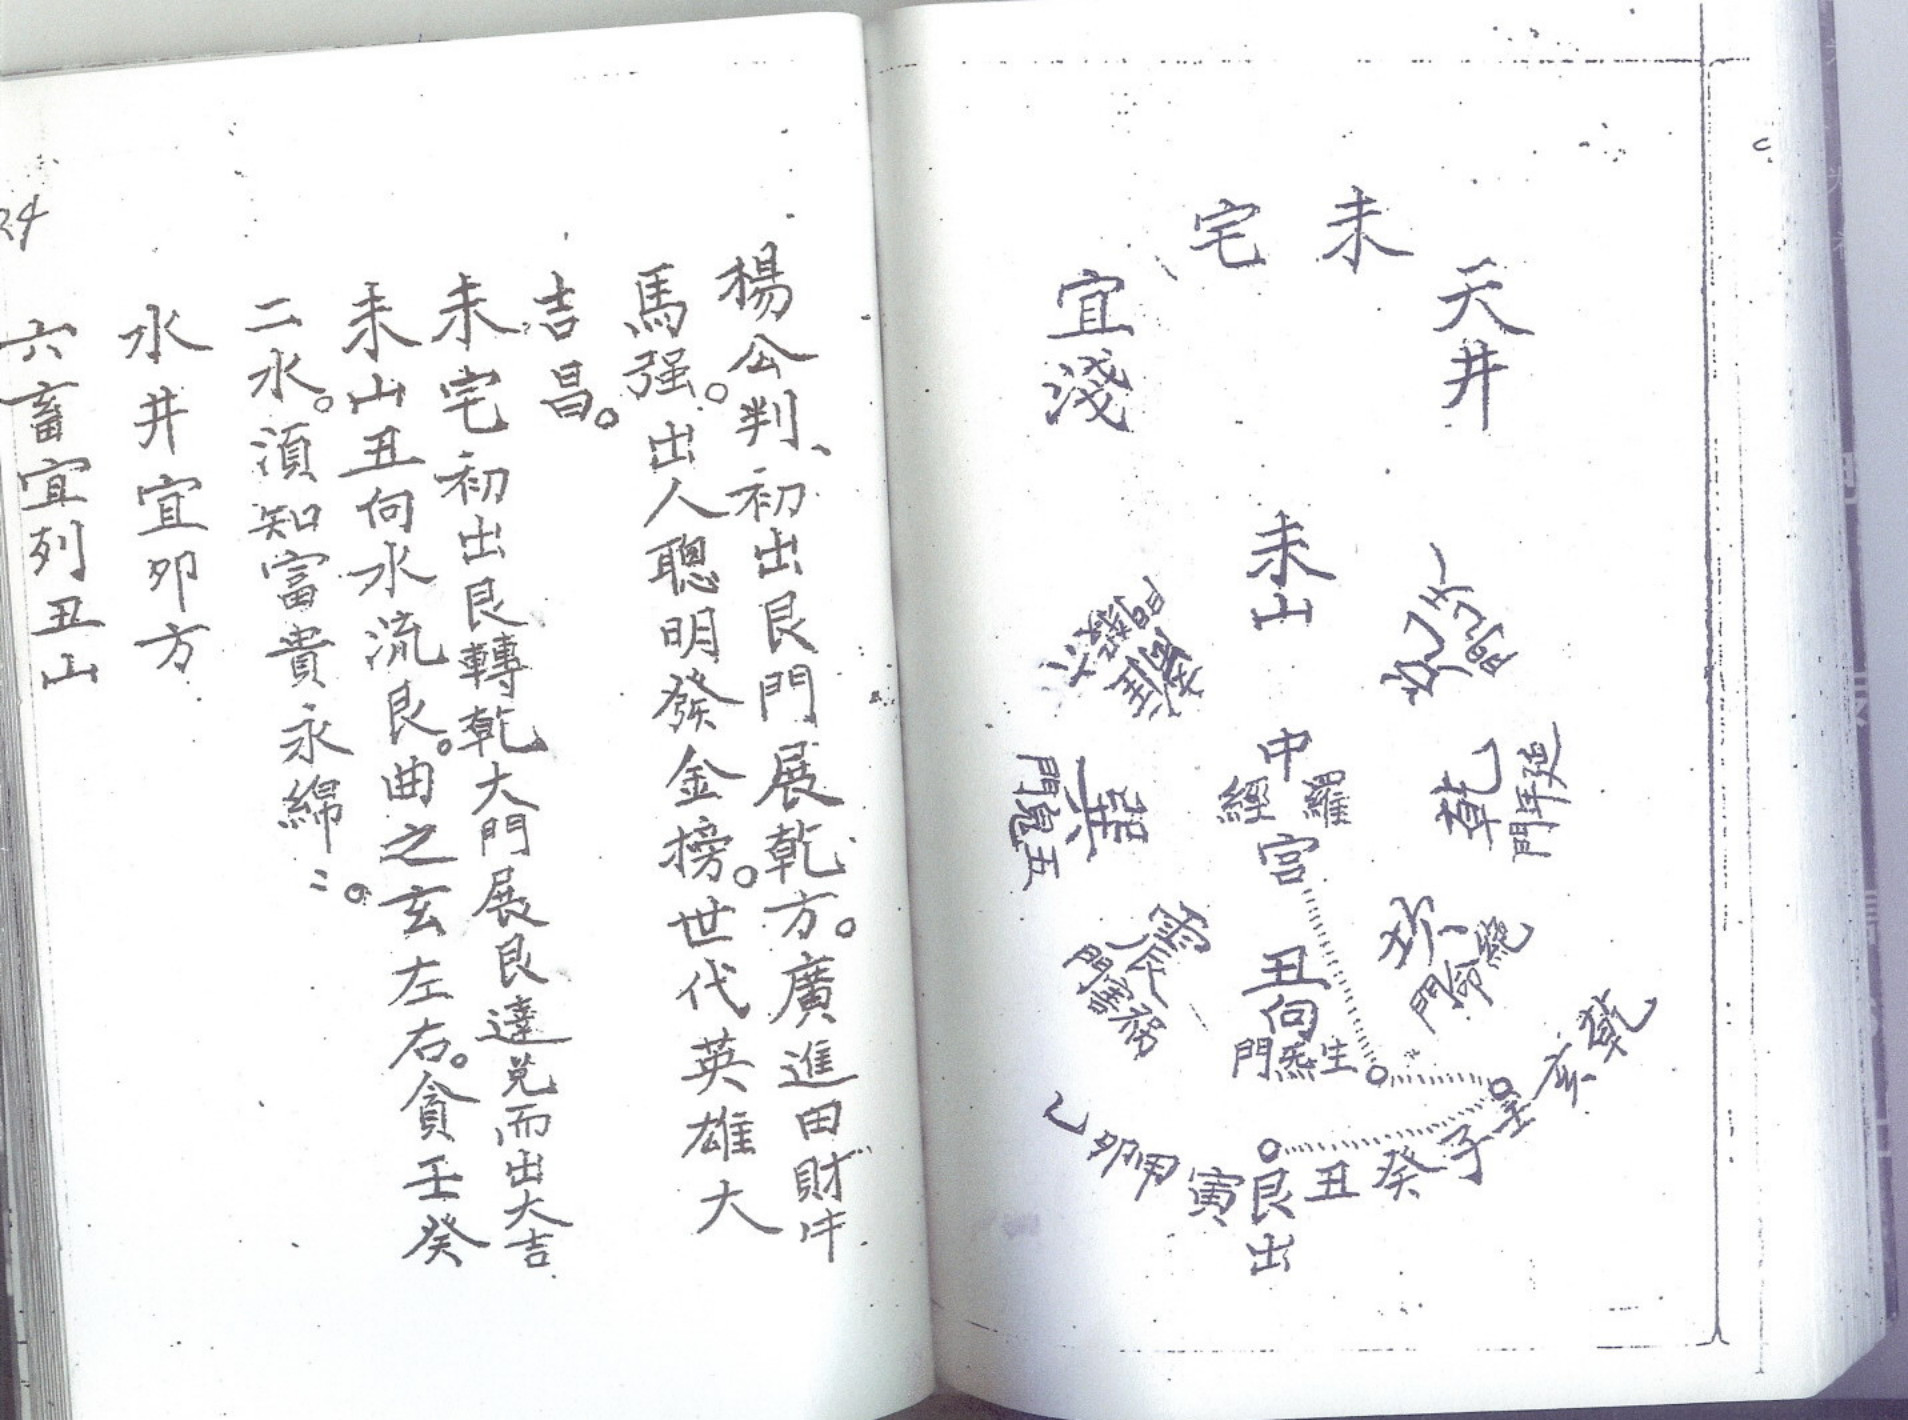 未宅
天井
宜淺
未山
中
羅經
宮
乾
延年門
坎
絕命門
丑向
生炁門
震
禍害門
巽
五鬼門
六煞門
乾亥壬子癸丑艮寅甲卯乙
出
楊公判、初出艮門展乾方。廣進田財牛
馬强。出人聰明發金榜。世代英雄大
吉昌。
未宅初出艮轉乾大門展艮達兑而出大吉
未山丑向水流艮。曲之玄左右。貪壬癸
二水。須知富貴永綿〻。
水井宜卯方
六畜宜列丑山
24